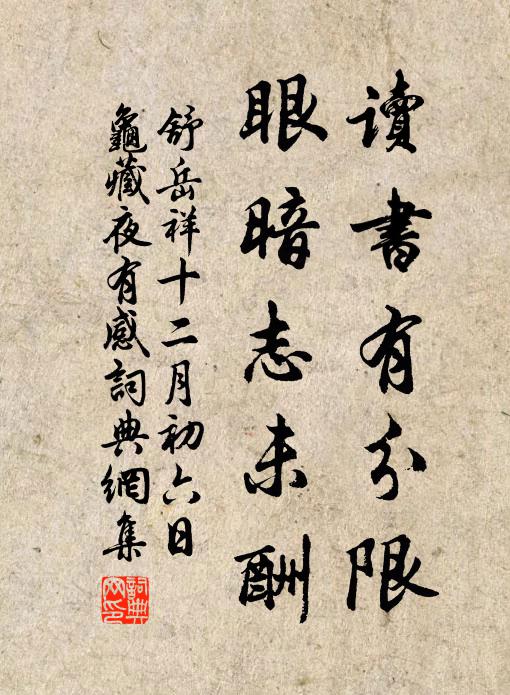 讀書有分限
眼暗志未酬
舒岳祥十二月初六日
龜藏夜有感詞典網集
詞典网印